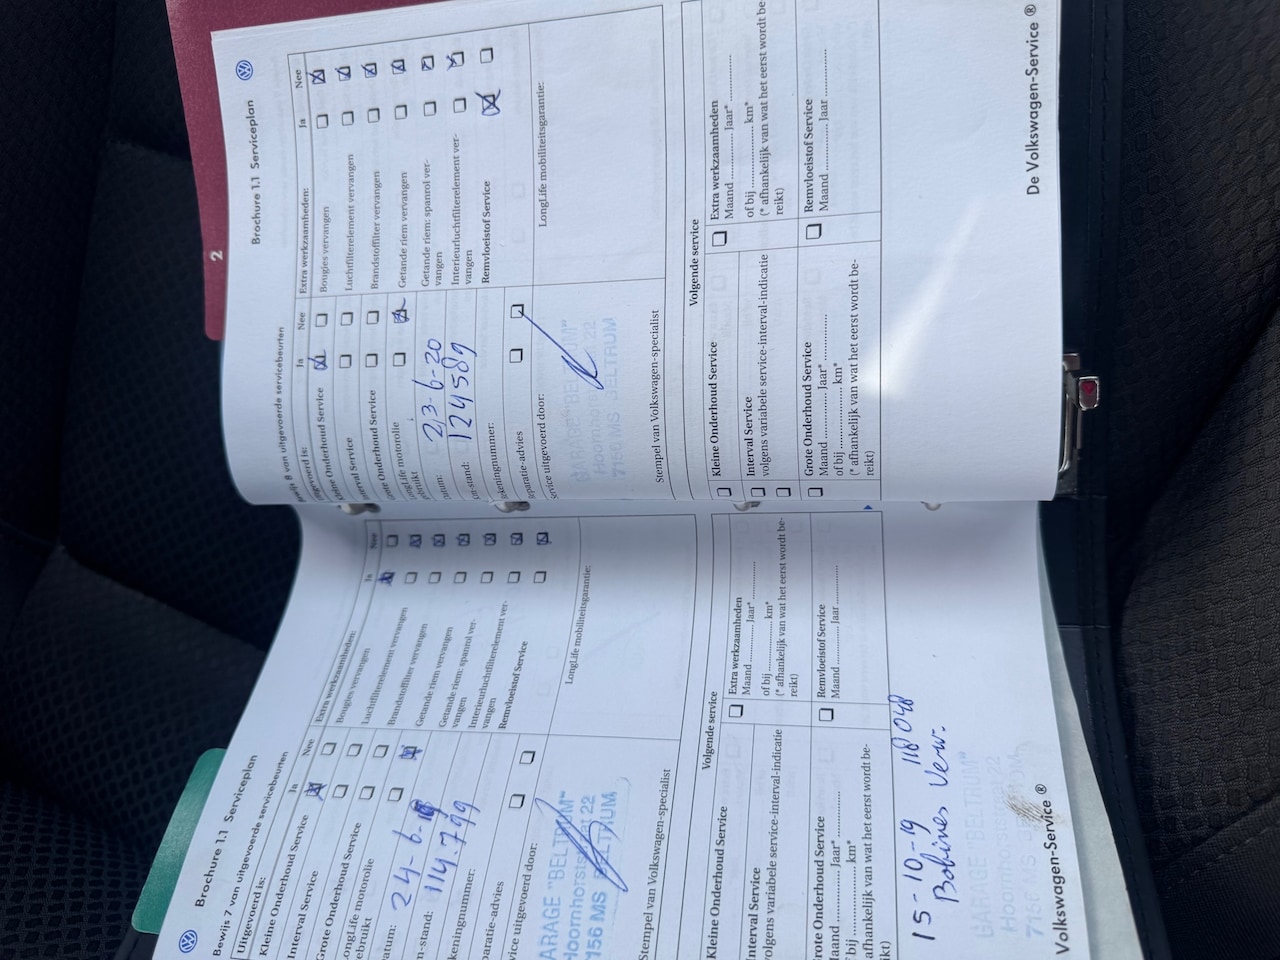 Brochure 1.1 Serviceplan
Bewijs 7 van uitgevoerde servicebeurten
Uitgevoerd is:
Ja
Nee
Kleine Onderhoud Service
Interval Service
Grote Onderhoud Service
LongLife motorolie
ebruikt
atum: 24-6-
m-stand: 114.799
keningnummer:
paratie-advies
vice uitgevoerd door:
ARAGE "BELTRUM"
Hoornhorststraat 22
7156 MS BELTRUM
Stempel van Volkswagen-specialist
Extra werkzaamheden:
Ja
Nee
Bougies vervangen
Luchtfilterelement vervangen
Brandstoffilter vervangen
Getande riem vervangen
Getande riem: spanrol ver-
vangen
Interieurluchtfilterelement ver-
vangen
Remvloeistof Service
LongLife mobiliteitsgarantie:
Volgende service
Kleine Onderhoud Service
Interval Service
volgens variabele service-interval-indicatie
Grote Onderhoud Service
Maand ............ Jaar* ............
f bij ............ km*
afhankelijk van wat het eerst wordt be-
ikt)
Extra werkzaamheden
Maand ............ Jaar* ............
of bij ............ km*
(* afhankelijk van wat het eerst wordt be-
reikt)
Remvloeistof Service
Maand ............ Jaar ............
15-10-19 118048
Bobines Verw.
GARAGE "BELTRUM"
Volkswagen-Service ®
2
Brochure 1.1 Serviceplan
Bewijs 8 van uitgevoerde servicebeurten
itgevoerd is:
Ja
Nee
leine Onderhoud Service
nterval Service
rote Onderhoud Service
LongLife motorolie
ebruikt
tum: 23-6-20
m-stand: 124589
ekeningnummer:
eparatie-advies
Service uitgevoerd door:
GARAGE "BELTRUM"
Hoornhorststraat 22
7156 MS BELTRUM
Stempel van Volkswagen-specialist
Extra werkzaamheden:
Ja
Nee
Bougies vervangen
Luchtfilterelement vervangen
Brandstoffilter vervangen
Getande riem vervangen
Getande riem: spanrol ver-
vangen
Interieurluchtfilterelement ver-
vangen
Remvloeistof Service
LongLife mobiliteitsgarantie:
Volgende service
Kleine Onderhoud Service
Interval Service
volgens variabele service-interval-indicatie
Grote Onderhoud Service
Maand ............ Jaar* ............
of bij ............ km*
(* afhankelijk van wat het eerst wordt be-
reikt)
Extra werkzaamheden
Maand ............ Jaar* ............
of bij ............ km*
(* afhankelijk van wat het eerst wordt be-
reikt)
Remvloeistof Service
Maand ............ Jaar ............
De Volkswagen-Service ®